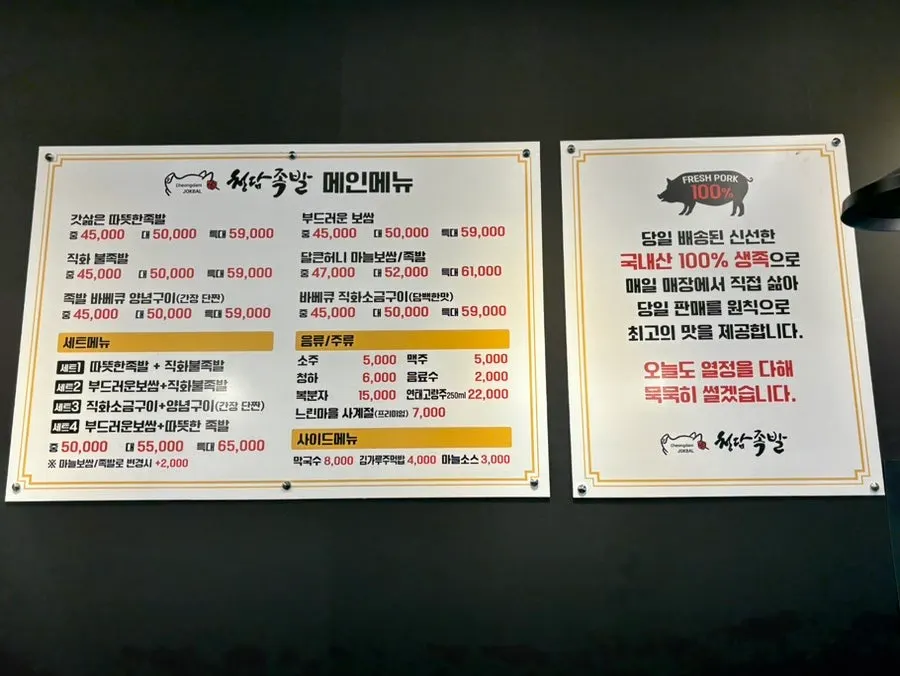 Cheongdam
JOKBAL
청담족발 메인메뉴
갓삶은 따뜻한족발
중 45,000 대 50,000 특대 59,000
직화 불족발
중 45,000 대 50,000 특대 59,000
족발 바베큐 양념구이(간장 단짠)
중 45,000 대 50,000 특대 59,000
세트메뉴
세트1 따뜻한족발 + 직화불족발
세트2 부드러운보쌈+직화불족발
세트3 직화소금구이+양념구이(간장 단짠)
세트4 부드러운보쌈+따뜻한 족발
중 50,000 대 55,000 특대 65,000
※ 마늘보쌈/족발로 변경시 +2,000
부드러운 보쌈
중 45,000 대 50,000 특대 59,000
달큰허니 마늘보쌈/족발
중 47,000 대 52,000 특대 61,000
바베큐 직화소금구이(담백한맛)
중 45,000 대 50,000 특대 59,000
음료/주류
소주 5,000 맥주 5,000
청하 6,000 음료수 2,000
복분자 15,000 연태고량주250ml 22,000
느린마을 사계절(프리미엄) 7,000
사이드메뉴
막국수 8,000 김가루주먹밥 4,000 마늘소스 3,000
FRESH PORK
100%
당일 배송된 신선한
국내산 100% 생족으로
매일 매장에서 직접 삶아
당일 판매를 원칙으로
최고의 맛을 제공합니다.
오늘도 열정을 다해
묵묵히 썰겠습니다.
Cheongdam
JOKBAL
청담족발